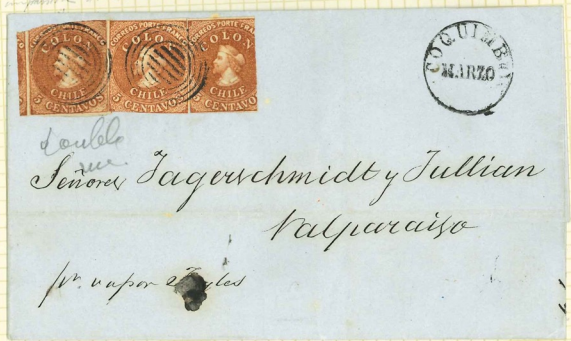 CORREOS PORTE FRANCO
COLON
CHILE
5 CENTAVOS
CORREOS PORTE FRANCO
COLON
CHILE
5 CENTAVOS
CORREOS PORTE FRAN
COLON
CHILE
5 CENTAVOS
COQUIMBO
MARZO
double
Señores Jagerschmidt y Jullian
Valparaiso
pr. vapor